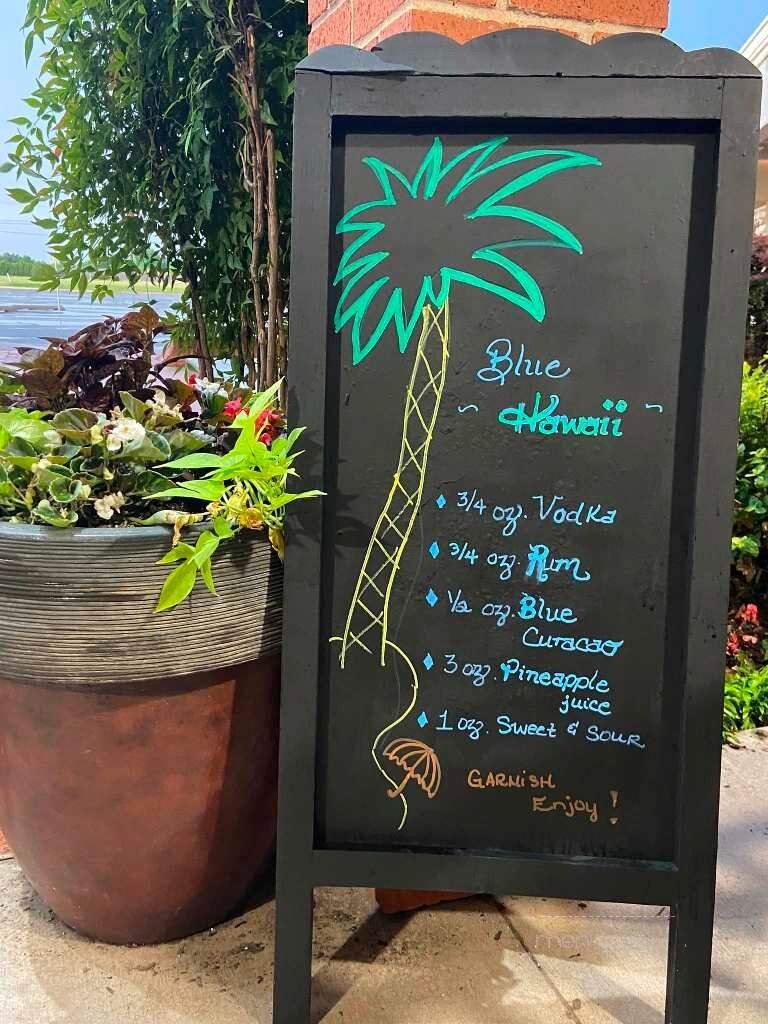 Blue
~ Hawaii ~
♦ 3/4 oz. Vodka
♦ 3/4 oz. Rum
♦ 1/2 oz. Blue
Curacao
♦ 3 oz. Pineapple
juice
♦ 1 oz. Sweet & Sour
Garnish
Enjoy!